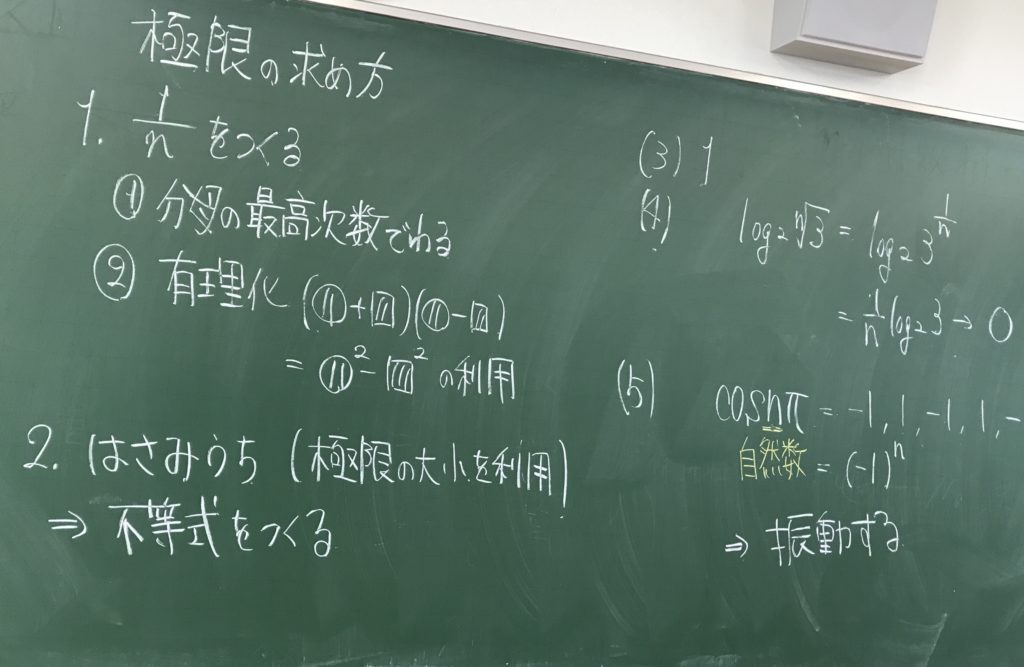 極限の求め方
1. 1/n をつくる
① 分母の最高次数でわる
② 有理化 (○+□)(○-□)
= ○²-□² の利用
2. はさみうち (極限の大小を利用)
⇒ 不等式をつくる
(3) 1
(4) log₂ ⁿ√3 = log₂ 3^(1/n)
= 1/n log₂ 3 → 0
(5) cos nπ = -1, 1, -1, 1, -
自然数 = (-1)ⁿ
⇒ 振動する